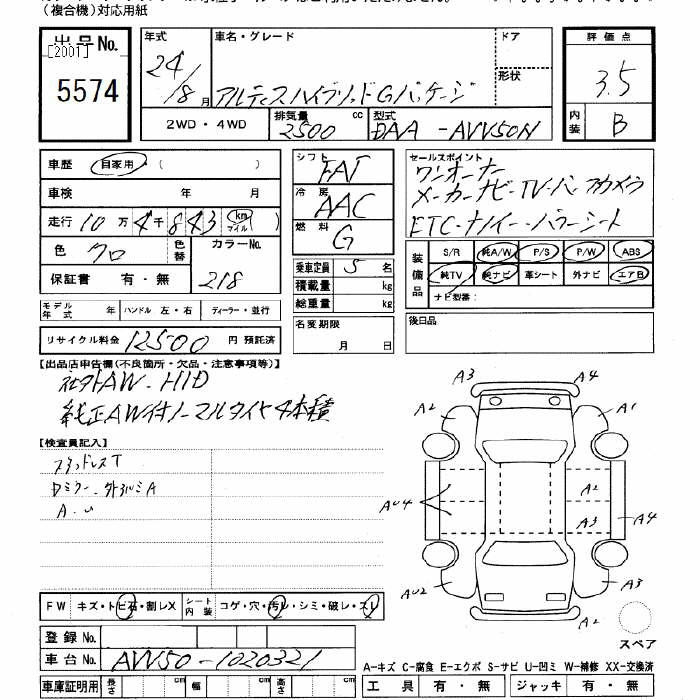 (複合機)対応用紙
出品No.
[2001]
5574
年式 24/8月
車名・グレード
アルティスハイブリッドGパッケージ
ドア
形状
2WD・4WD
排気量 2500 cc
型式 DAA-AVV50N
評価点
3.5
内装 B
車歴 自家用 ( )
車検 年 月
走行 10万4千843 km マイル
色 クロ
色替
カラーNo. 218
保証書 有・無
モデル年式 年
ハンドル 左・右
ディーラー・並行
リサイクル料金 12500円 預託済
シフト FAT
冷房 AAC
燃料 G
乗車定員 5名
積載量 kg
総重量 kg
名変期限
月 日
セールスポイント
ワンオーナー
メーカーナビ-TV-バックカメラ
ETC-ナノイー-パワーシート
装備品
S/R 純A/W P/S P/W ABS
純TV 純ナビ 革シート 外ナビ エアB
ナビ型番:
後日品
【出品店申告欄(不良箇所・欠品・注意事項等)】
社外AW-HID
純正AW付ノーマルタイヤ4本積
【検査員記入】
スタッドレスT
Dミラー-外ハルミA
A-U
A3 A4
A2 A1
AU4 A2
A3 A4
AU2 A3
スペア
FW キズ・トビ石・割レX
シート内装 コゲ・穴・汚レ・シミ・破レ・スレ
登録No.
車台No. AVV50-1020321
車庫証明用 長さ cm 幅 cm 高さ cm
A-キズ C-腐食 E-エクボ S-サビ U-凹ミ W-補修 XX-交換済
工具 有・無 ジャッキ 有・無